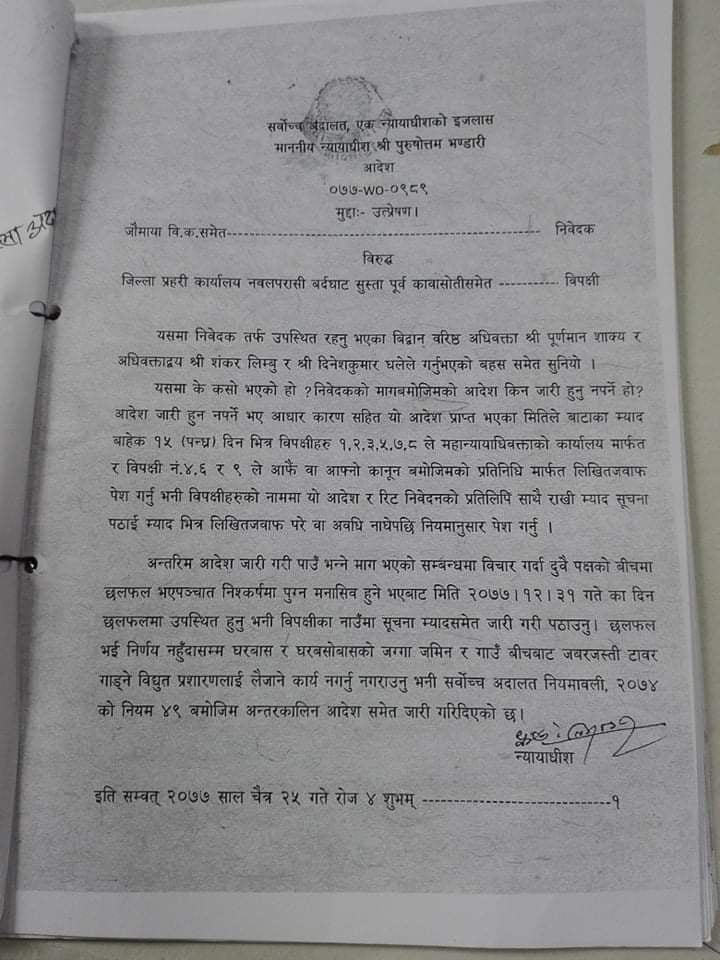 सर्वोच्च अदालत, एक न्यायाधीशको इजलास
माननीय न्यायाधीश श्री पुरुषोत्तम भण्डारी
आदेश
०७७-WO-०९८९
मुद्दाः- उत्प्रेषण।
जौमाया वि.क.समेत------------------------------------------------ निवेदक
विरुद्ध
जिल्ला प्रहरी कार्यालय नवलपरासी बर्दघाट सुस्ता पूर्व कावासोतीसमेत ----------- विपक्षी
यसमा निवेदक तर्फ उपस्थित रहनु भएका बिद्वान् वरिष्ठ अधिवक्ता श्री पूर्णमान शाक्य र
अधिवक्ताद्वय श्री शंकर लिम्बु र श्री दिनेशकुमार घलेले गर्नुभएको बहस समेत सुनियो ।
यसमा के कसो भएको हो ?निवेदकको मागबमोजिमको आदेश किन जारी हुनु नपर्ने हो?
आदेश जारी हुन नपर्ने भए आधार कारण सहित यो आदेश प्राप्त भएका मितिले बाटाका म्याद
बाहेक १५ (पन्ध्र) दिन भित्र विपक्षीहरु १,२,३,५,७,८ ले महान्यायाधिवक्ताको कार्यालय मार्फत
र विपक्षी नं.४,६ र ९ ले आफैं वा आफ्नो कानून बमोजिमको प्रतिनिधि मार्फत लिखितजवाफ
पेश गर्नु भनी विपक्षीहरुको नाममा यो आदेश र रिट निवेदनको प्रतिलिपि साथै राखी म्याद सूचना
पठाई म्याद भित्र लिखितजवाफ परे वा अवधि नाघेपछि नियमानुसार पेश गर्नु ।
अन्तरिम आदेश जारी गरी पाउँ भन्ने माग भएको सम्बन्धमा विचार गर्दा दुवै पक्षको बीचमा
छलफल भएपञ्चात निश्कर्षमा पुग्न मनासिव हुने भएबाट मिति २०७७।१२।३१ गते का दिन
छलफलमा उपस्थित हुनु भनी विपक्षीका नाउँमा सूचना म्यादसमेत जारी गरी पठाउनु। छलफल
भई निर्णय नहुँदासम्म घरबास र घरबसोबासको जग्गा जमिन र गाउँ बीचबाट जबरजस्ती टावर
गाड्ने विद्युत प्रशारणलाई लैजाने कार्य नगर्नु नगराउनु भनी सर्वोच्च अदालत नियमावली, २०७४
को नियम ४९ बमोजिम अन्तरकालिन आदेश समेत जारी गरिदिएको छ।
न्यायाधीश
इति सम्वत् २०७७ साल चैत्र २५ गते रोज ४ शुभम् -----------------------------१